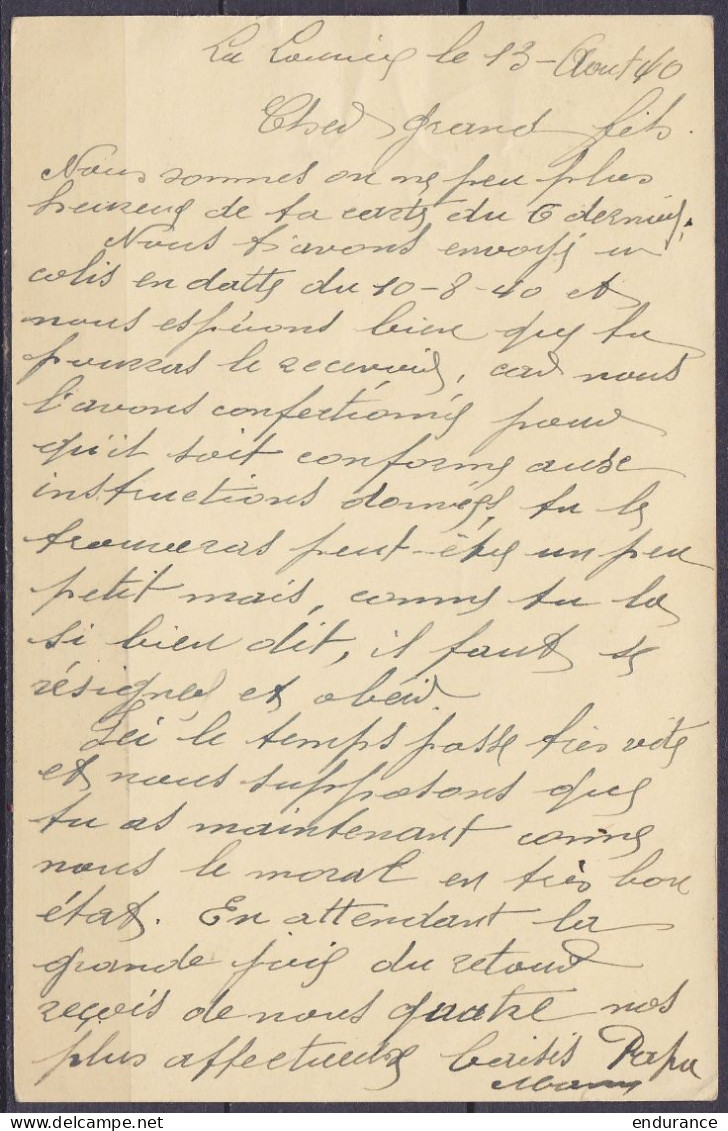 La Louvière le 13 - Aout 40
Cher grand fils.
Nous sommes on ne peu plus
heureux de ta carte du 6 dernier.
Nous t'avons envoyé un
colis en datte du 10-8-40 et
nous espérons bien que tu
pourras le recevoir, car nous
l'avons confectionné pour
qu'il soit conforme aux
instructions données, tu le
trouveras peut-être un peu
petit mais, comme tu la
si bien dit, il faut se
résigner et obéir.
Ici le temps passe très vite
et nous supposons que
tu as maintenant comme
nous le moral en très bon
état. En attendant la
grande joie du retour
reçois de nous quatre nos
plus affectueux baisés Papa
Maman
delcampe.net
endurance